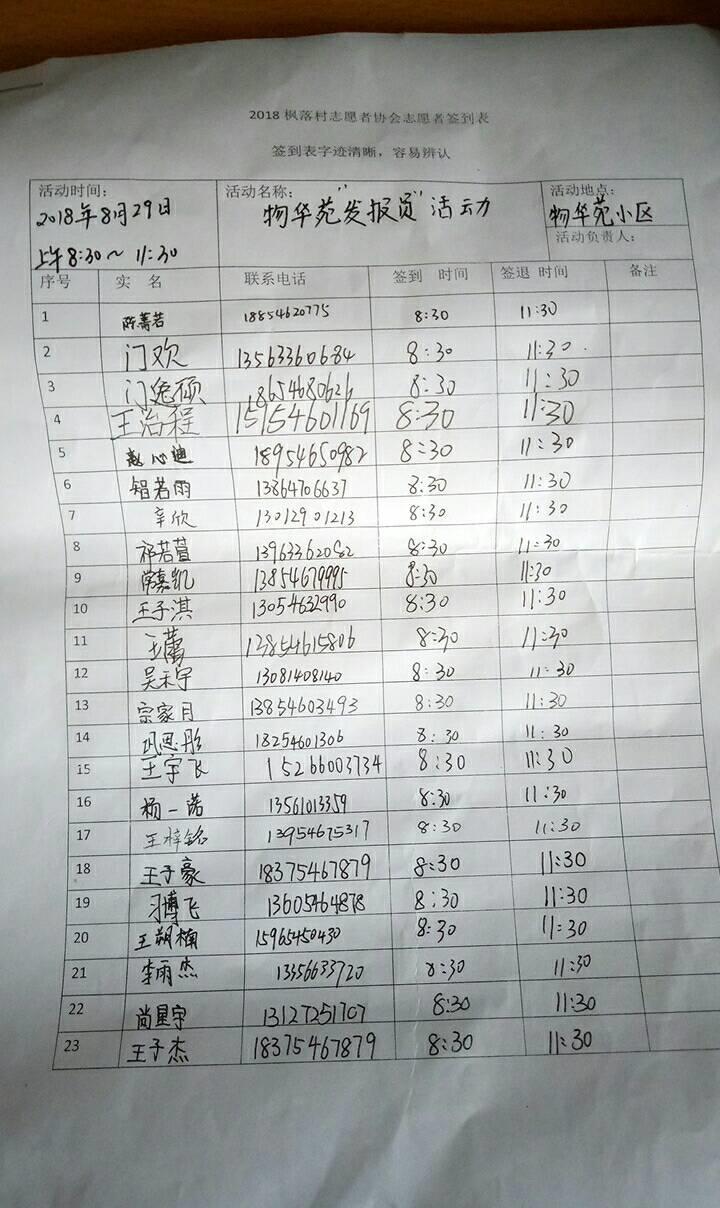 2018 枫落村志愿者协会志愿者签到表
签到表字迹清晰，容易辨认
活动时间： 活动名称： 活动地点：
2018年8月29日 "物华苑发报员"活动 物华苑小区
上午8:30～11:30 活动负责人：
序号 实 名 联系电话 签到 时间 签退 时间 备注
1 陈菁若 18854620775 8:30 11:30
2 门欢 13563360684 8:30 11:30
3 门逸硕 18654680626 8:30 11:30
4 王治程 15154601169 8:30 11:30
5 赵心迪 18954650982 8:30 11:30
6 智若雨 13864706637 8:30 11:30
7 辛欣 13012901213 8:30 11:30
8 祁若萱 13963362082 8:30 11:30
9 嘉凯 13854679995 8:30 11:30
10 王子淇 13054632990 8:30 11:30
11 13854615806 8:30 11:30
12 吴禾宇 13081408140 8:30 11:30
13 宗家月 13854603493 8:30 11:30
14 巩思彤 18254601306 8:30 11:30
15 王宇飞 15266003734 8:30 11:30
16 杨一诺 13561013359 8:30 11:30
17 王梓铭 13954675317 8:30 11:30
18 王子豪 18375467879 8:30 11:30
19 刁博飞 13605464878 8:30 11:30
20 王朔楠 15965450430 8:30 11:30
21 李雨杰 13356633720 8:30 11:30
22 尚星宇 13127251707 8:30 11:30
23 王子杰 18375467879 8:30 11:30